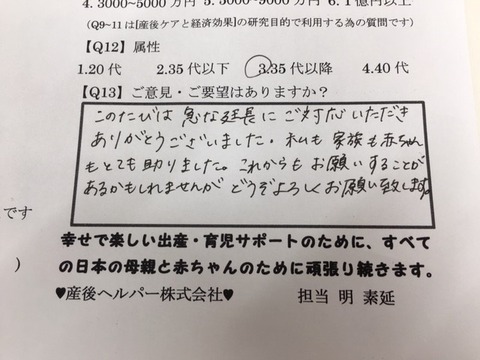 4. 3000～5000万円 5. 5000～9000万円 6. 1億円以上
(Q9~11は[産後ケアと経済効果]の研究目的で利用する為の質問です)
【Q12】属性
1.20代 2.35代以下 3.35代以降 4.40代
【Q13】ご意見・ご要望はありますか？
このたびは 急な延長に ご対応いただき
ありがとうございました。私も 家族も赤ちゃん
もとても助りました。これからも お願いすることが
あるかもしれませんが どうぞよろしくお願い致します。
です
幸せで楽しい出産・育児サポートのために、すべて
の日本の母親と赤ちゃんのために頑張り続きます。
)
♥産後ヘルパー株式会社♥ 担当 明 素延